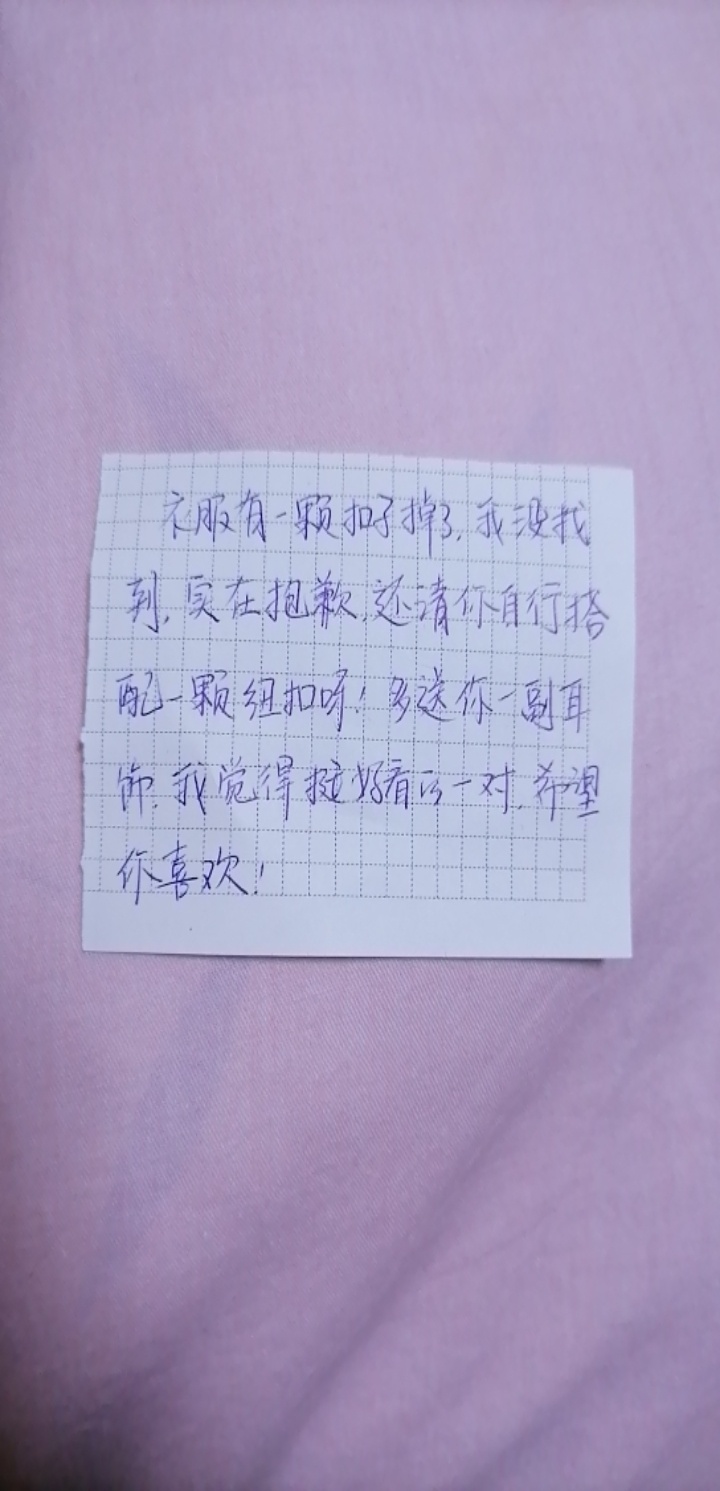 衣服有一颗扣子掉了，我没找
到，实在抱歉，还请你自行搭
配一颗纽扣呀！多送你一副耳
饰，我觉得挺好看的一对，希望
你喜欢！